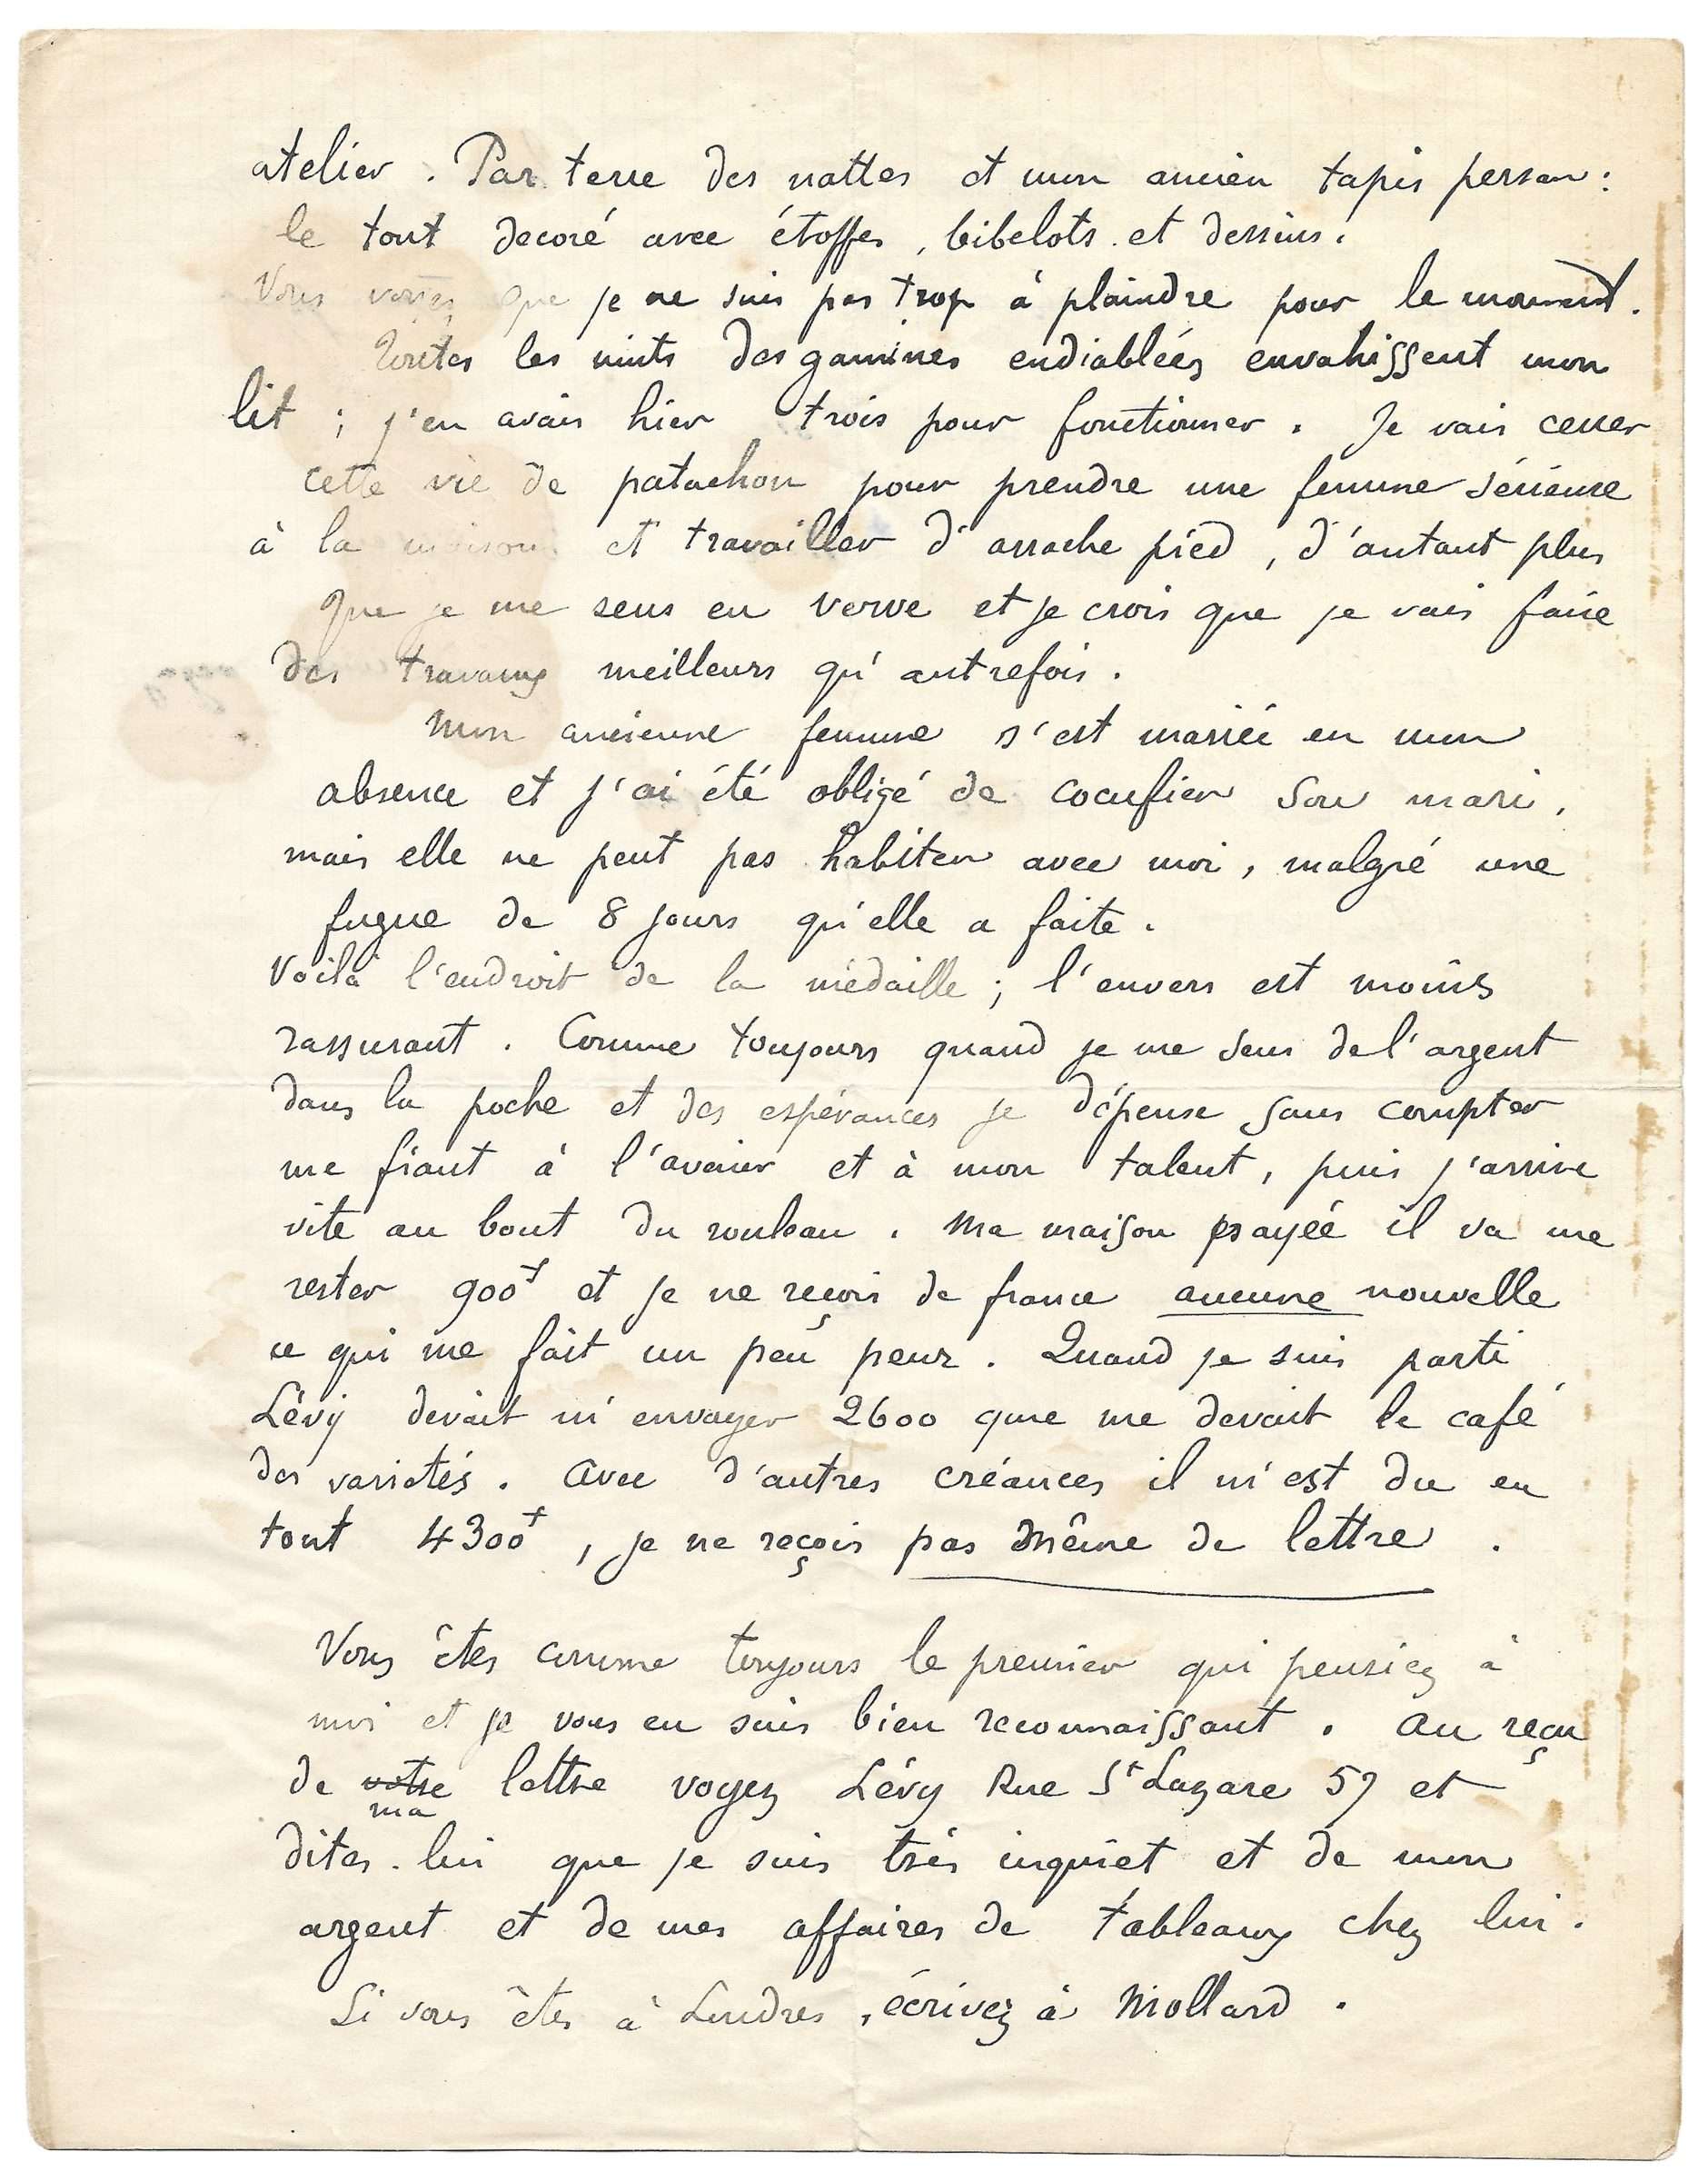 atelier. Par terre des nattes et mon ancien tapis persan:
le tout decoré avec étoffes, bibelots et dessins.
Vous voyez que je ne suis pas trop à plaindre pour le moment.
Toutes les nuits des gamines endiablées envahissent mon
lit; j'en avais hier trois pour fonctionner. Je vais cesser
cette vie de patachon pour prendre une femme sérieuse
à la maison et travailler d'arrache pied, d'autant plus
que je me sens en verve et je crois que je vais faire
des travaux meilleurs qu'autrefois.
Mon ancienne femme s'est mariée en mon
absence et j'ai été obligé de cocufier son mari,
mais elle ne peut pas habiter avec moi, malgré une
fugue de 8 jours qu'elle a faite.
Voilà l'endroit de la médaille; l'envers est moins
rassurant. Comme toujours quand je me sens de l'argent
dans la poche et des espérances je dépense sans compter
me fiant à l'avenir et à mon talent, puis j'arrive
vite au bout du rouleau. Ma maison payée il va me
rester 900f et je ne reçois de france aucune nouvelle
ce qui me fait un peu peur. Quand je suis parti
Lévy devait m'envoyer 2600 que me devait le café
des varietés. Avec d'autres créances il m'est du en
tout 4300f, je ne reçois pas même de lettre.
Vous êtes comme toujours le premier qui pensiez à
moi et je vous en suis bien reconnaissant. Au reçu
de votre lettre voyez Lévy Rue St Lazare 57 et
ma
dites-lui que je suis très inquiet et de mon
argent et de mes affaires de tableaux chez lui.
Si vous êtes à Londres, écrivez à Mollard.